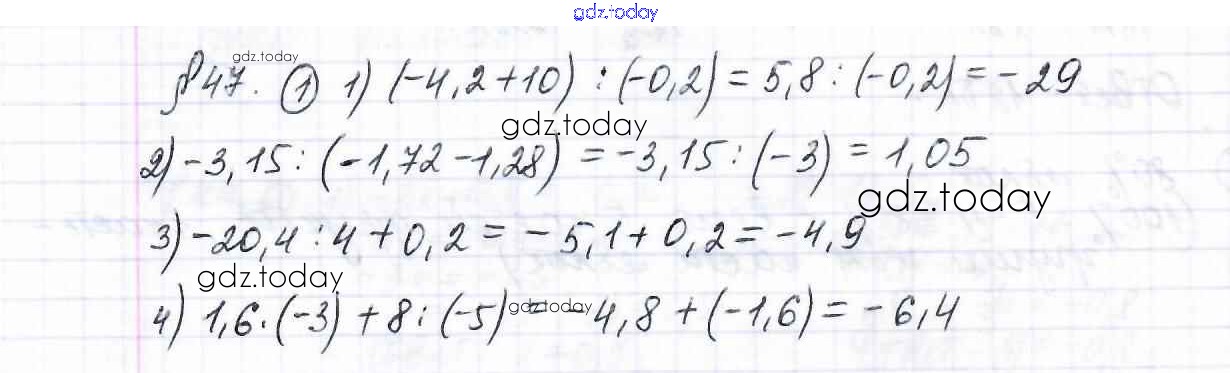 gdz.today
gdz.today
§47. ① 1) (-4,2+10) : (-0,2) = 5,8 : (-0,2) = -29
gdz.today
2) -3,15 : (-1,72-1,28) = -3,15 : (-3) = 1,05
gdz.today
3) -20,4 : 4 + 0,2 = -5,1 + 0,2 = -4,9
gdz.today
4) 1,6·(-3) + 8 : (-5) = -4,8 + (-1,6) = -6,4
gdz.today